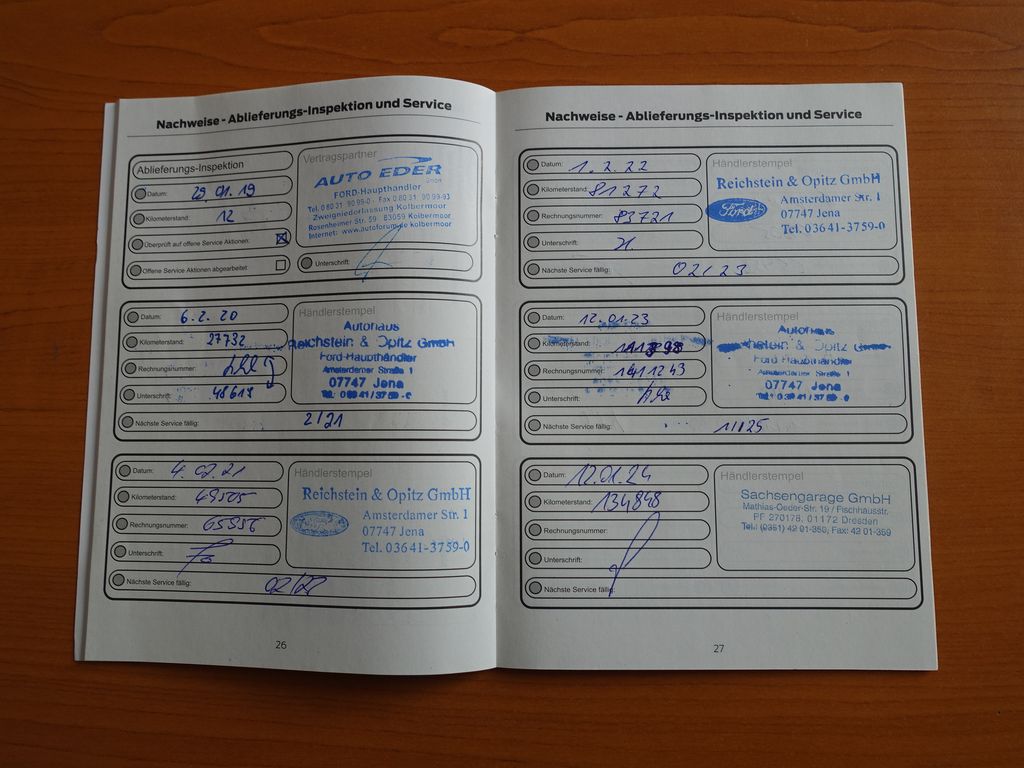 Nachweise - Ablieferungs-Inspektion und Service
Ablieferungs-Inspektion
Datum: 29.01.19
Kilometerstand: 12
Überprüft auf offene Service Aktionen:
Offene Service Aktionen abgearbeitet:
Vertragspartner
AUTO EDER
FORD-Haupthändler
Tel. 0 80 31 90 99-0 · Fax 0 80 31 90 99-93
Zweigniederlassung Kolbermoor
Rosenheimer Str. 59 83059 Kolbermoor
Internet: www.autoforum.de kolbermoor
Unterschrift:
Datum: 6.2.20
Kilometerstand: 27732
Rechnungsnummer:
Unterschrift: 48619
Händlerstempel
Autohaus
Reichstein & Opitz GmbH
Ford-Haupthändler
Amsterdamer Straße 1
07747 Jena
Nächste Service fällig: 2/21
Datum: 4.02.21
Kilometerstand: 49505
Rechnungsnummer: 65956
Unterschrift:
Händlerstempel
Reichstein & Opitz GmbH
Amsterdamer Str. 1
07747 Jena
Tel. 03641-3759-0
Nächste Service fällig: 02/22
26
Nachweise - Ablieferungs-Inspektion und Service
Datum: 1.2.22
Kilometerstand: 81272
Rechnungsnummer: 83721
Unterschrift:
Händlerstempel
Reichstein & Opitz GmbH
Ford
Amsterdamer Str. 1
07747 Jena
Tel. 03641-3759-0
Nächste Service fällig: 02/23
Datum: 12.01.23
Kilometerstand:
Rechnungsnummer: 1411243
Unterschrift:
Händlerstempel
Autohaus
& Opitz GmbH
Ford Haupthändler
Amsterdamer Straße 1
07747 Jena
Nächste Service fällig: 1/25
Datum: 12.01.24
Kilometerstand: 134848
Rechnungsnummer:
Unterschrift:
Händlerstempel
Sachsengarage GmbH
Mathias-Oeder-Str. 19 / Fischhausstr.
PF 270178, 01172 Dresden
Tel.: (0351) 42 01-350, Fax: 42 01-359
Nächste Service fällig:
27